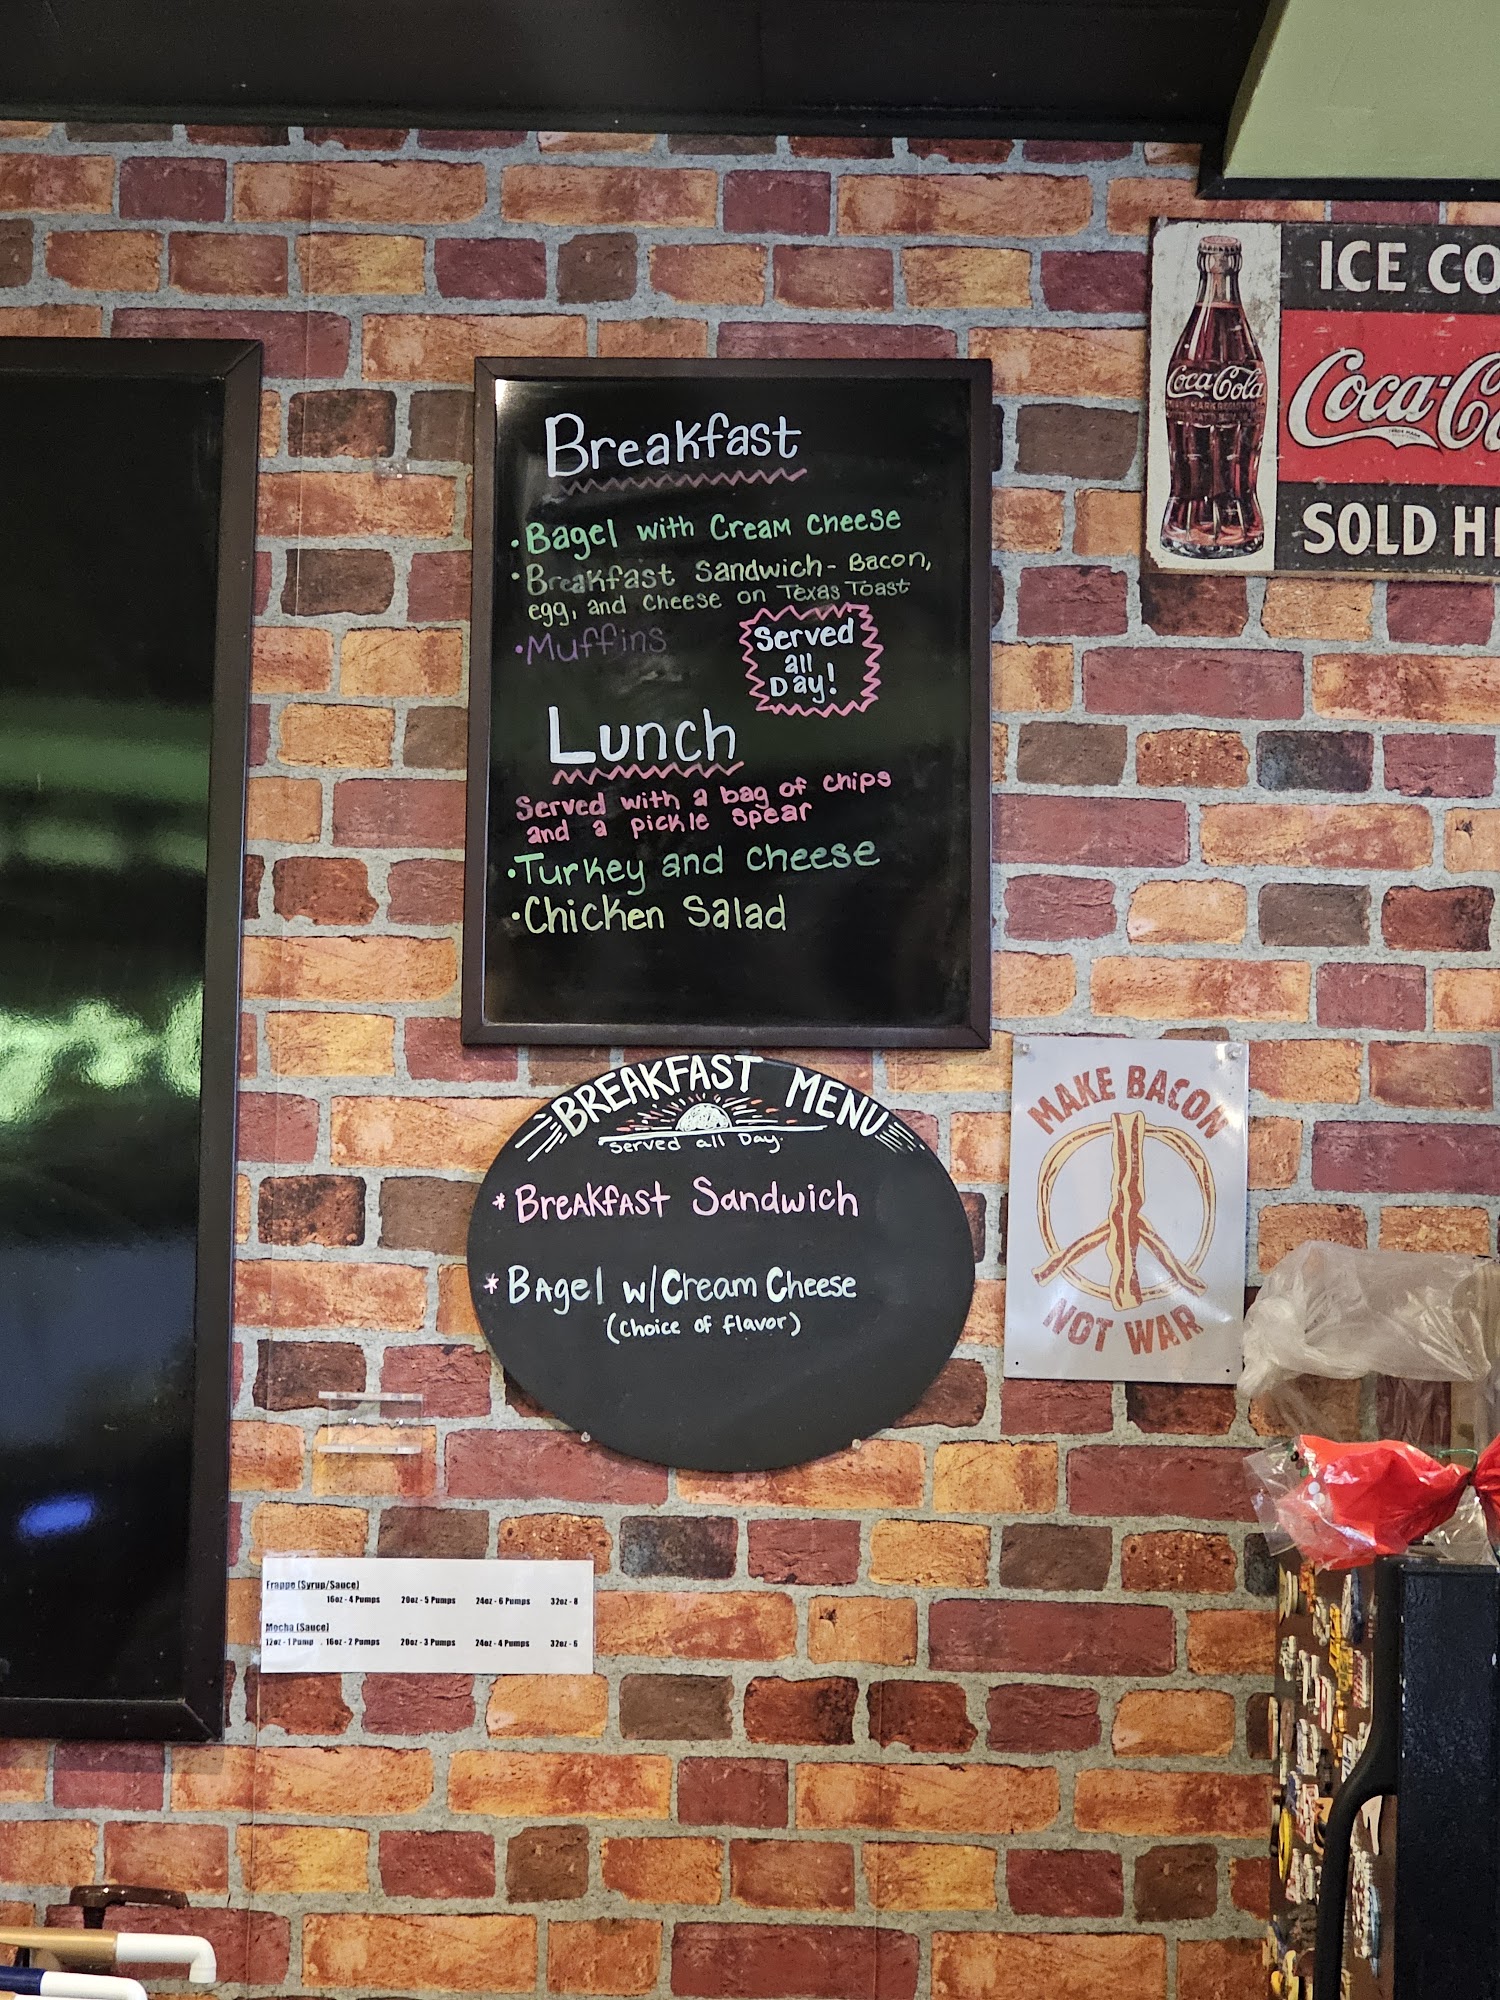 Breakfast
• Bagel with Cream Cheese
• Breakfast Sandwich - Bacon,
egg, and Cheese on Texas Toast
• Muffins
Served
all
Day!
Lunch
Served with a bag of chips
and a pickle spear
• Turkey and Cheese
• Chicken Salad
BREAKFAST MENU
Served all Day.
* Breakfast Sandwich
* Bagel w/Cream Cheese
(Choice of flavor)
ICE CO
Coca-Cola
Coca-Co
SOLD H
MAKE BACON
NOT WAR
Frappe (Syrup/Sauce)
16oz - 4 Pumps 20oz - 5 Pumps 24oz - 6 Pumps 32oz - 8
Mocha (Sauce)
12oz - 1 Pump . 16oz - 2 Pumps 20oz - 3 Pumps 24oz - 4 Pumps 32oz - 6